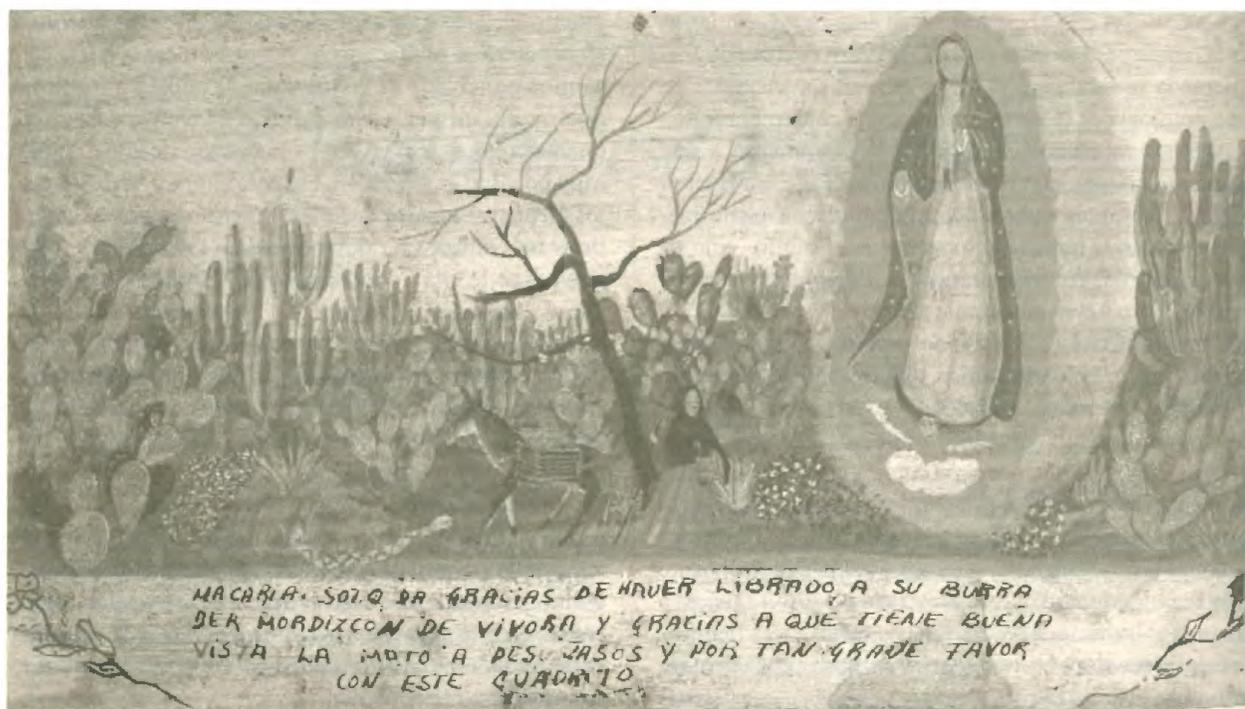 MACARIA. SOZA DA GRACIAS DE HAVER LIBRADO A SU BURRA
DER MORDIZCON DE VIVORA Y GRACIAS A QUE TIENE BUENA
VISTA LA MATO A Y POR TAN GRADE FAVOR
CON ESTE CUADRITO